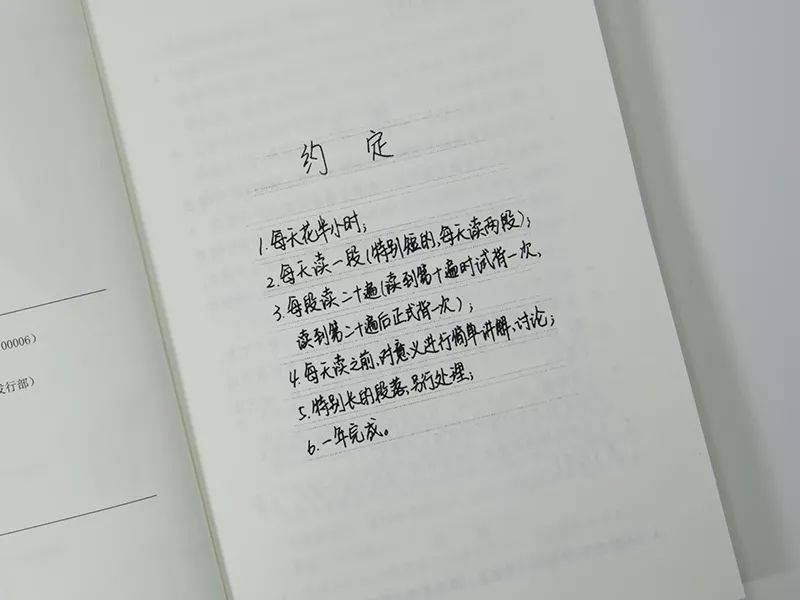 约 定
1.每天花半小时;
2.每天读一段(特别短的,每天读两段);
3.每段读二十遍(读到第十遍时试背一次,
读到第二十遍后正式背一次);
4.每天读之前,对意义进行简单讲解、讨论;
5.特别长的段落,另行处理;
6.一年完成。
00006)
发行部)